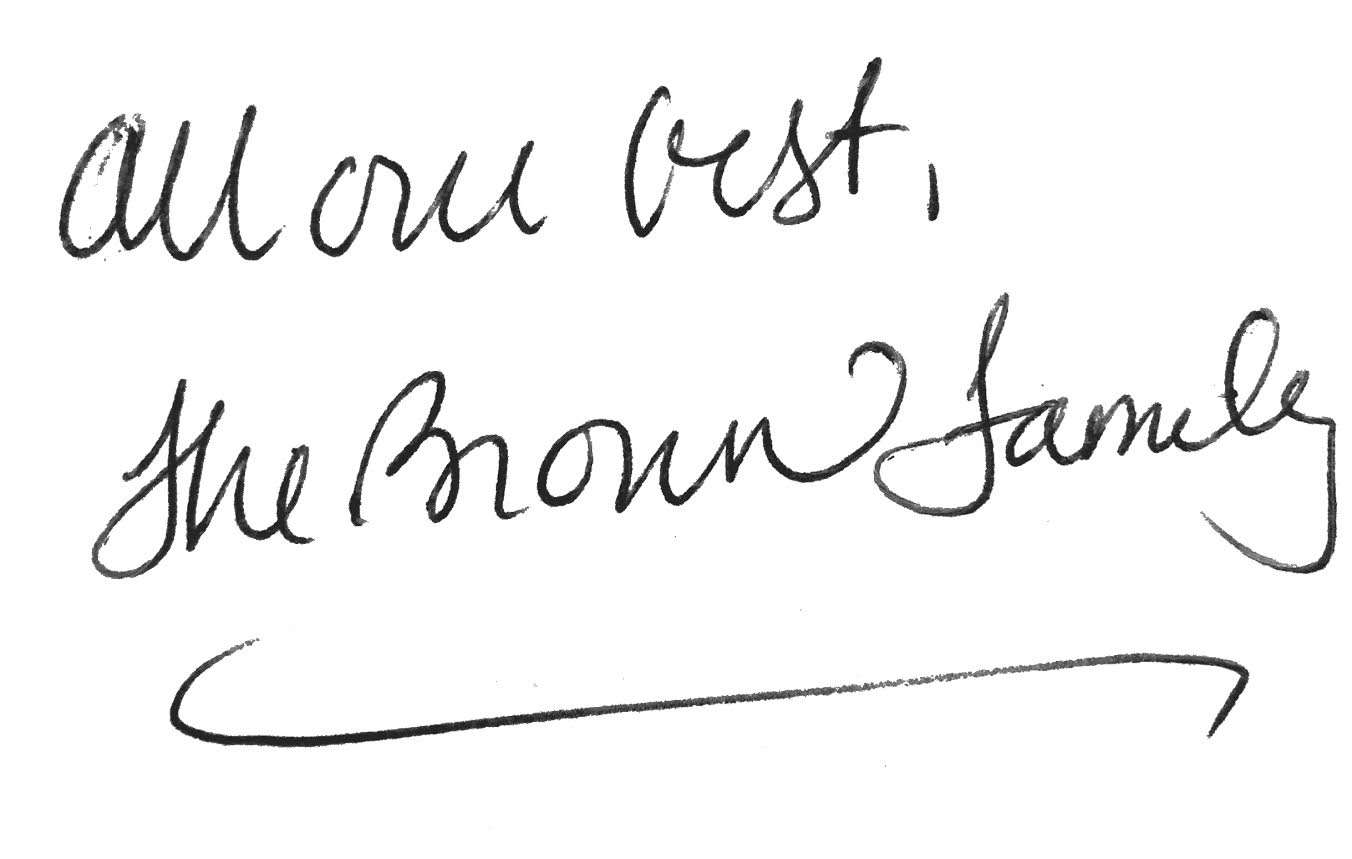 All our best,
The Brown Family